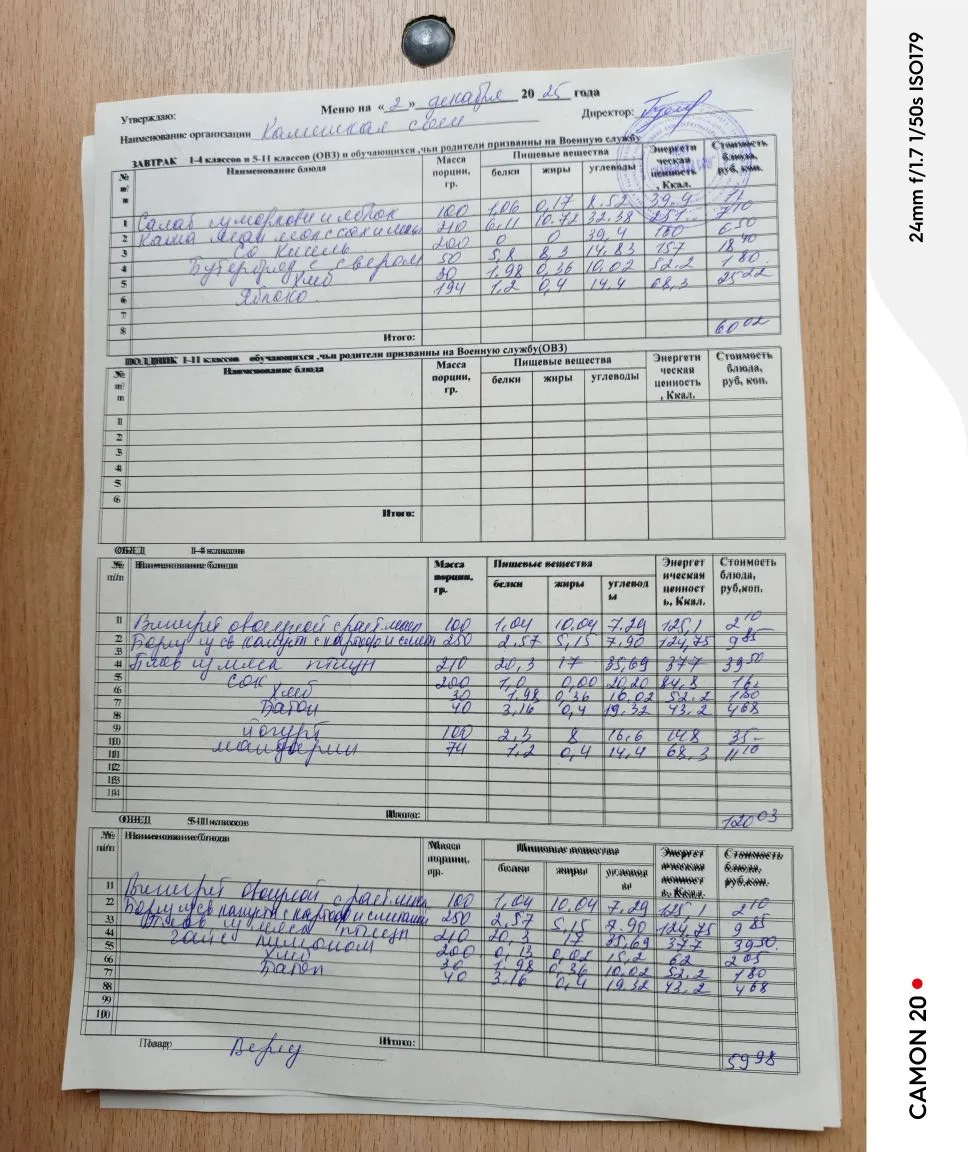 Меню на « 2 » декабря 20 25 года
Утверждаю: Директор:
Наименование организации Каменская сош
ЗАВТРАК 1-4 классов и 5-11 классов (ОВЗ) и обучающихся ,чьи родители призванны на Военную службу
№ п/п Наименование блюда Масса порции, гр. Пищевые вещества Энергети ческая ценность , Ккал. Стоимость блюда, руб, коп.
белки жиры углеводы
1 Салат из моркови и яблок 100 1,06 0,17 8,52 39,9
2 Каша 210 6,11 10,72 32,38 251 7 10
3 Кисель 200 0 0 39,4 160 6 50
4 Бутерброд с сыром 50 5,8 8,3 14,83 157 18 40
5 Хлеб 30 1,98 0,36 10,02 52,2 1 80
6 Яблоко 194 1,2 0,4 14,4 68,3 25 22
7
8
Итого: 60 02
ПОЛДНИК 1-11 классов обучающихся ,чьи родители призванны на Военную службу(ОВЗ)
№ п/п Наименование блюда Масса порции, гр. Пищевые вещества Энергети ческая ценность , Ккал. Стоимость блюда, руб, коп.
белки жиры углеводы
1
2
3
4
5
6
Итого:
ОБЕД 1-4 классов
№ п/п Наименование блюда Масса порции, гр. Пищевые вещества Энергет ическая ценност ь, Ккал. Стоимость блюда, руб,коп.
белки жиры углевод ы
1 Винегрет овощной с раст маслом 100 1,04 10,04 7,29 125,1 2 10
2 Борщ из св капусты с картоф и сметан 250 2,57 5,15 7,90 124,75 9 85
3
4 Плов из мяса птицы 210 20,3 17 35,69 377 39 50
5 сок 200 1,0 0,00 20,20 84,8 16
6 Хлеб 30 1,98 0,36 10,02 52,2 1 80
7 Батон 40 3,16 0,4 19,32 43,2 4 68
8
9 йогурт 100 2,3 8 16,6 148 35-
10 мандарин 74 1,2 0,4 14,4 68,3 11 10
11
12
13
14
Итого: 120 03
ОБЕД 5-11 классов
№ п/п Наименование блюда Масса порции, гр. Пищевые вещества Энергет ическая ценност ь, Ккал. Стоимость блюда, руб,коп.
белки жиры углевод ы
1 Винегрет овощной с раст маслом 100 1,04 10,04 7,29 125,1 2 10
2 Борщ из св капусты с картоф и сметаны 250 2,57 5,15 7,90 124,75 9 85
3 Плов из мяса птицы 210 20,3 17 35,69 377 39 50
4 Чай с лимоном 200 0,13 0,02 15,2 62 2 05
5 Хлеб 30 1,98 0,36 10,02 52,2 1 80
6 Батон 40 3,16 0,4 19,32 43,2 4 68
7
8
9
10
Повар Итого: 59 98
24mm f/1.7 1/50s ISO179
CAMON 20